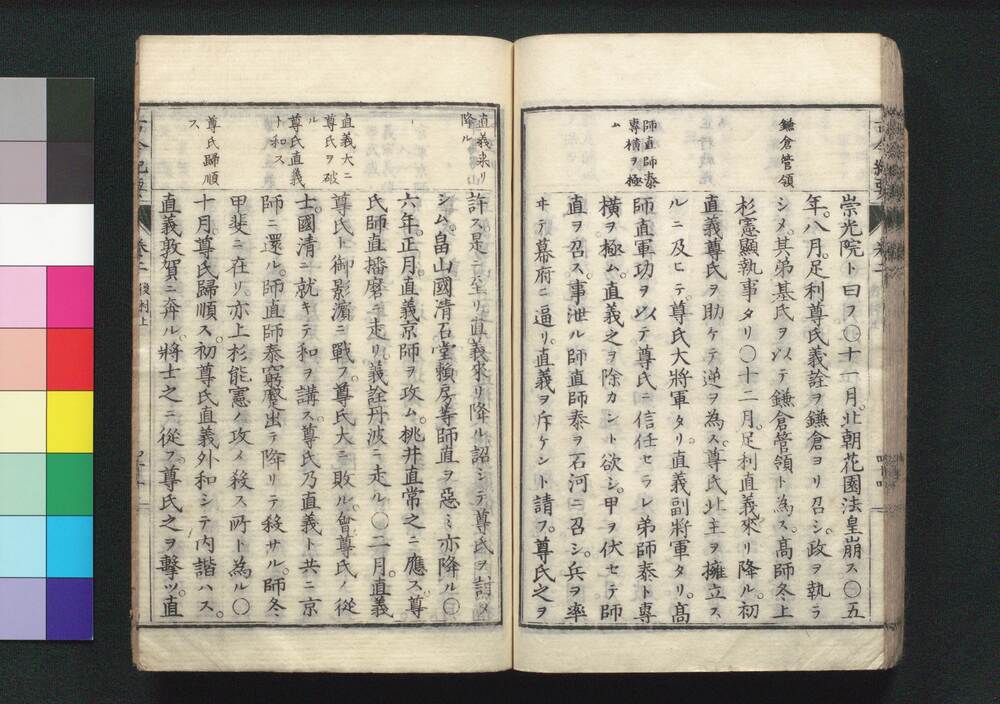 鎌倉管領
師直師泰
專横ヲ極
ム
崇光院ト曰フ。〇十一月。北朝花園法皇崩ス〇五
年。八月。足利尊氏義詮ヲ鎌倉ヨリ召シ。政ヲ執ラ
シメ。其弟基氏ヲ以テ鎌倉管領ト為ス。高師冬上
杉憲顯執事タリ〇十二月。足利直義來リ降ル。初
直義尊氏ヲ助ケテ逆ヲ為ス。尊氏北主ヲ擁立ス
ルニ及ヒテ。尊氏大將軍タリ。直義副將軍タリ。高
師直軍功ヲ以テ尊氏ニ信任セラレ弟師泰ト專
横ヲ極ム。直義之ヲ除カント欲シ。甲ヲ伏セテ師
直ヲ召ス。事泄ル師直師泰ヲ石河ニ召シ。兵ヲ率
ヰテ幕府ニ逼リ。直義ヲ斥ケント請フ。尊氏之ヲ
古今紀要
卷二
直義来リ
降ル
直義大ニ
尊氏ヲ破
ル
尊氏直義
ト和ス
尊氏歸順
ス
許ス是ニ至リ直義來リ降ル詔シテ尊氏ヲ討タ
シム。畠山國清石堂賴房等師直ヲ惡ミ亦降ル〇
六年。正月。直義京師ヲ攻ム。桃井直常之ニ應ス。尊
氏師直播磨ニ走リ。義詮丹波ニ走ル。〇二月。直義
尊氏ト御影濱ニ戰フ。尊氏大ニ敗ル。會尊氏ノ從
士。國清ニ就キテ和ヲ講ス。尊氏乃直義ト共ニ京
師ニ還ル。師直師泰窮蹙出テ降リテ殺サル。師冬
甲斐ニ在リ。亦上杉能憲ノ攻メ殺ス所ト為ル〇
十月。尊氏歸順ス。初尊氏直義外和シテ内諧ハス。
直義敦賀ニ奔ル。將士之ニ從フ。尊氏之ヲ擊ツ。直